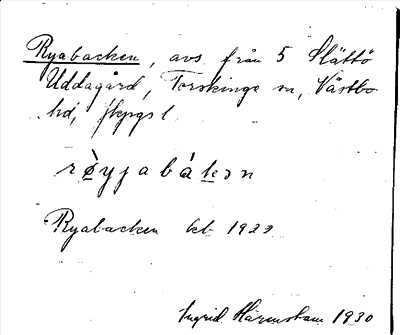 Ryabacken, avs. från 5 Slättö
Uddagård, Torskinge sn, Västbo
hd, Jkpgs l.
røyjabákən
Ryabacken kb 1929
Ingrid Härenstam 1930